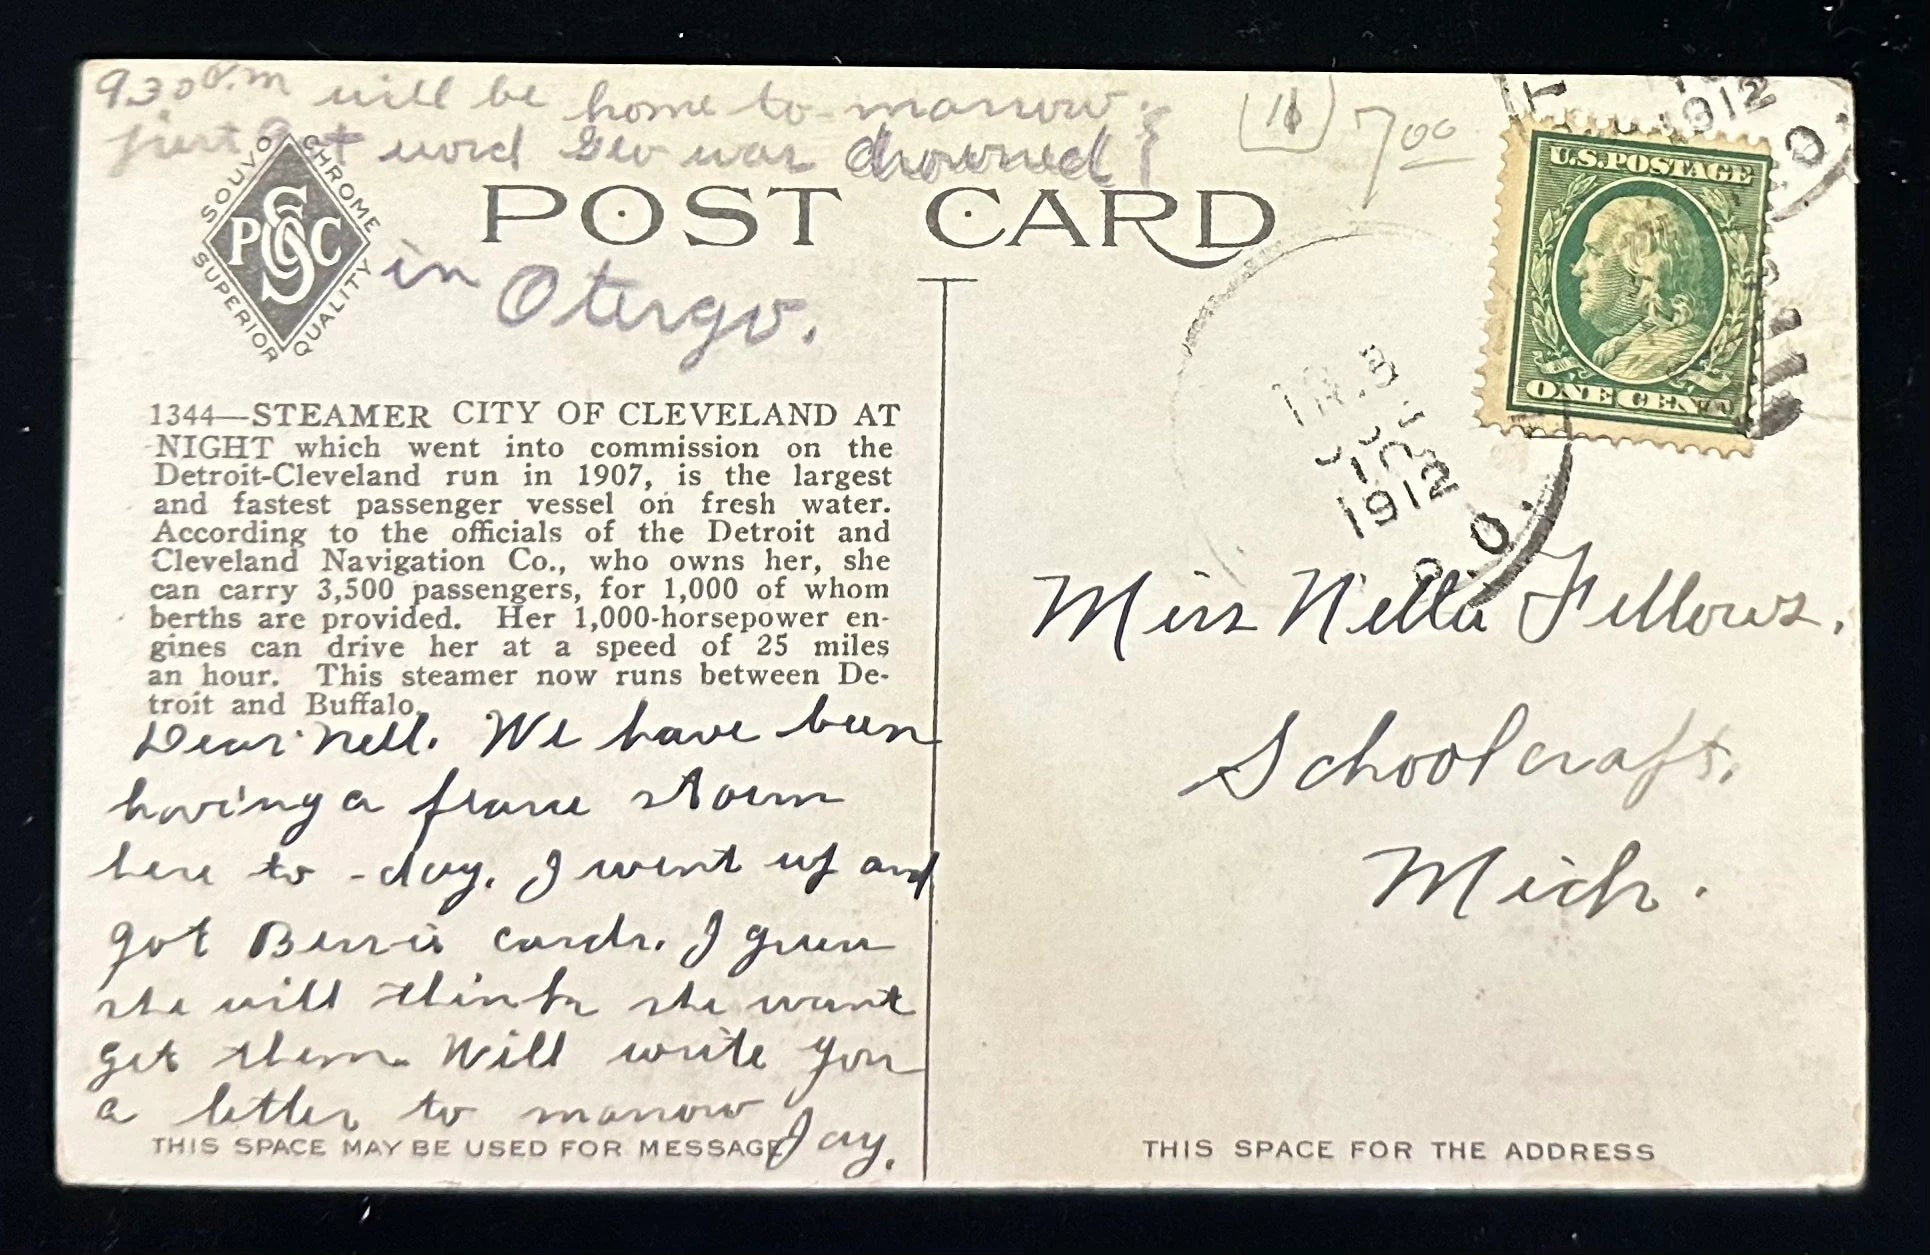 9.30 a.m will be home to-morrow
just got word Geo was drowned
in Otsego.
11
7 00
SOUVO CHROME
PSC
SUPERIOR QUALITY
POST CARD
U.S. POSTAGE
ONE CENT
1912
O.
1344—STEAMER CITY OF CLEVELAND AT
NIGHT which went into commission on the
Detroit-Cleveland run in 1907, is the largest
and fastest passenger vessel on fresh water.
According to the officials of the Detroit and
Cleveland Navigation Co., who owns her, she
can carry 3,500 passengers, for 1,000 of whom
berths are provided. Her 1,000-horsepower en-
gines can drive her at a speed of 25 miles
an hour. This steamer now runs between De-
troit and Buffalo.
Dear Nell. We have been
having a storm
here to-day. I went up and
got cards. I guess
she will think she want
get them. Will write you
a letter to morrow
Jay.
THIS SPACE MAY BE USED FOR MESSAGE
1912
P.O.
Miss Nella Fellows.
Schoolcraft.
Mich.
THIS SPACE FOR THE ADDRESS